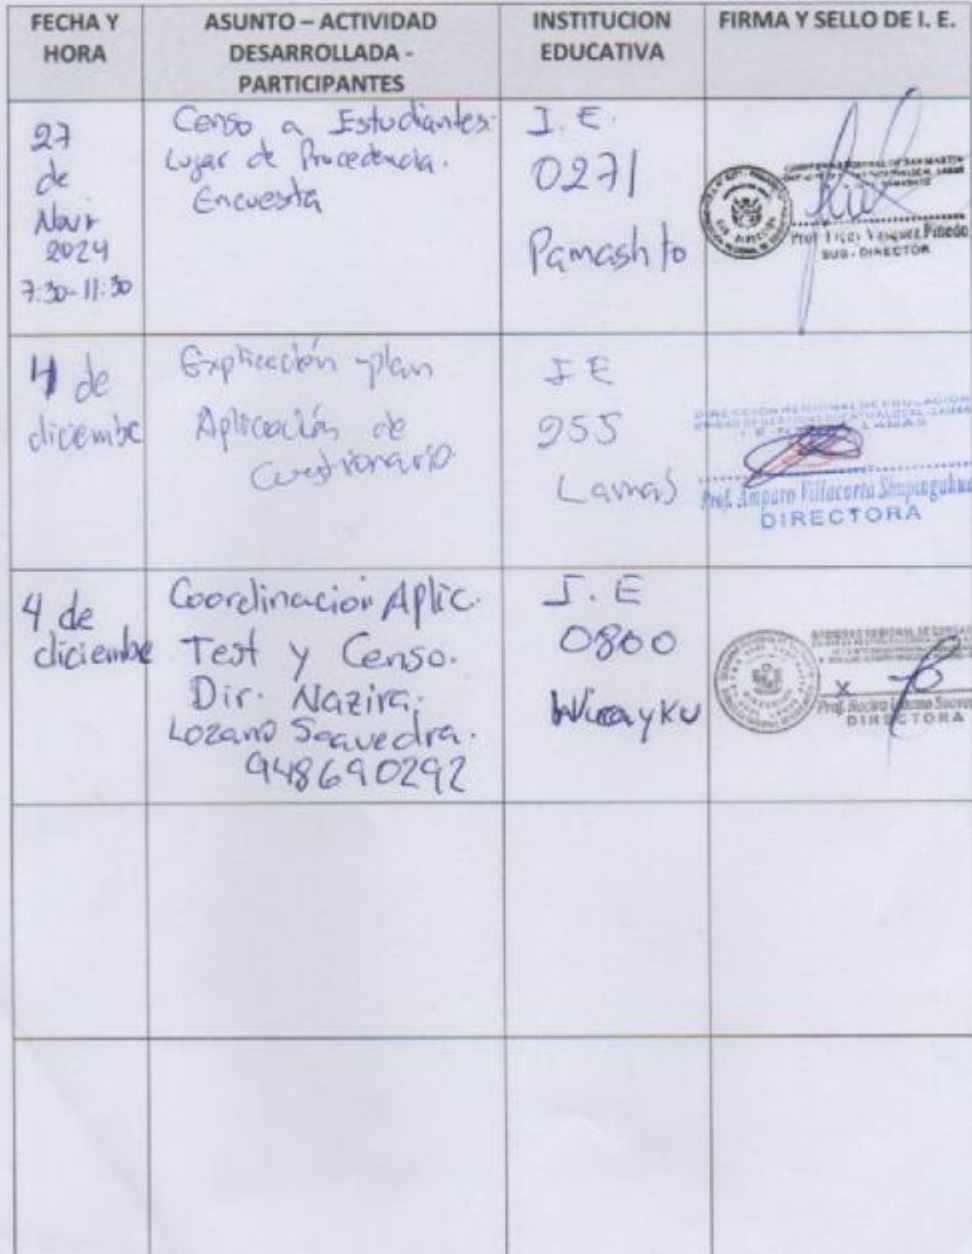 FECHA Y
HORA
ASUNTO – ACTIVIDAD
DESARROLLADA -
PARTICIPANTES
INSTITUCION
EDUCATIVA
FIRMA Y SELLO DE I. E.
27
de
2024
7:30-11:30
Censo a Estudiantes.
Lugar de Procedencia.
Encuesta
I.E.
0271
Pamashto
Vasquez Pinedo
SUB - DIRECTOR
4 de
diciembre
Explicación plan
Aplicación de
Cuestionario
I E
255
Lamas
LAMAS
Prof. Amparo Villacorta
DIRECTORA
4 de
diciembre
Coordinación Aplic.
Test y Censo.
Dir. Nazira.
Lozano Saavedra.
948690292
I.E
0800
Wayku
DIRECTORA